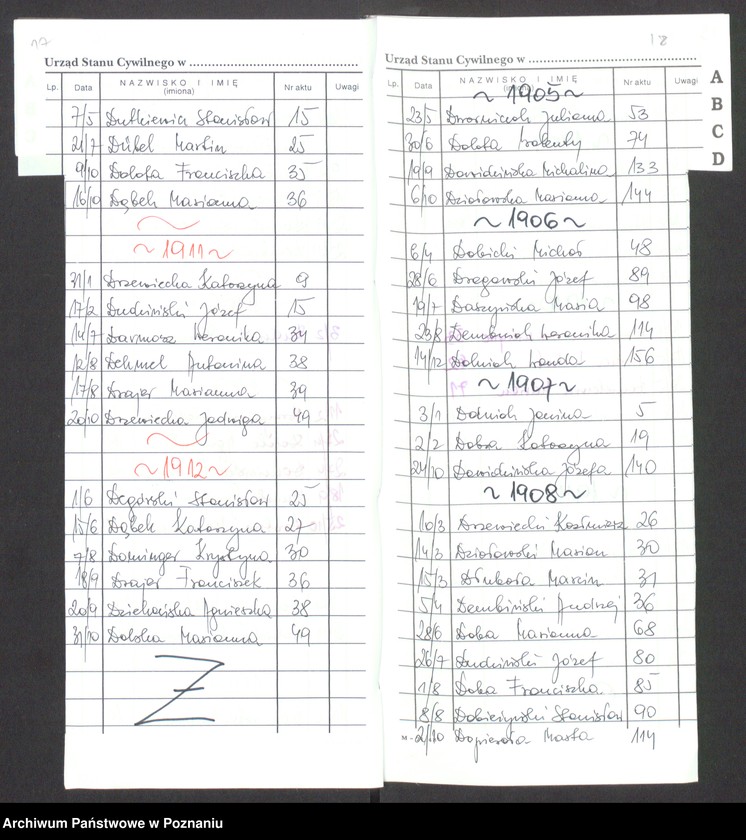 17
Urząd Stanu Cywilnego w
Lp. Data NAZWISKO I IMIĘ (imiona) Nr aktu Uwagi
7/5 Dutkiewicz Stanisław 15
21/7 Martin 25
9/10 Dolota Franciszka 35
16/10 Dąbek Marianna 36
~1911~
31/1 Drzewiecka Katarzyna 9
17/2 Dudziński Józef 15
14/7 Darmosz Weronika 34
12/8 Dehmel Antonina 38
17/8 Drajer Marianna 39
20/10 Drzewiecka Jadwiga 49
~1912~
1/6 Degórski Stanisław 25
15/6 Dąbek Katarzyna 27
7/8 Dominger Krystyna 30
18/9 Drajer Franciszek 36
20/9 Dziekańska Agnieszka 38
31/10 Dolska Marianna 49
Z
18
Urząd Stanu Cywilnego w
Lp. Data NAZWISKO I IMIĘ (imiona) Nr aktu Uwagi
A
B
C
D
~1905~
23/5 Juliana 53
30/6 Dolota Walenty 74
19/9 Dawidzińska Michalina 133
6/10 Działowska Marianna 144
~1906~
6/4 Dolnicki Michał 48
28/6 Dregowski Józef 89
19/7 Daszyńska Maria 98
23/8 Dembniak Weronika 114
14/12 Dolniak Wanda 156
~1907~
3/1 Dolniak Janina 5
2/2 Dobra Katarzyna 19
24/10 Dawidzińska Józefa 140
~1908~
10/3 Drzewiecki Kazimierz 26
14/3 Działowski Marian 30
15/3 Marcin 31
5/4 Dembiński Andrzej 36
28/6 Doba Marianna 68
26/7 Dudziński Józef 80
1/8 Doba Franciszka 85
8/8 Stanisław 90
M - 2/10 Dopierała Marta 114
Archiwum Państwowe w Poznaniu